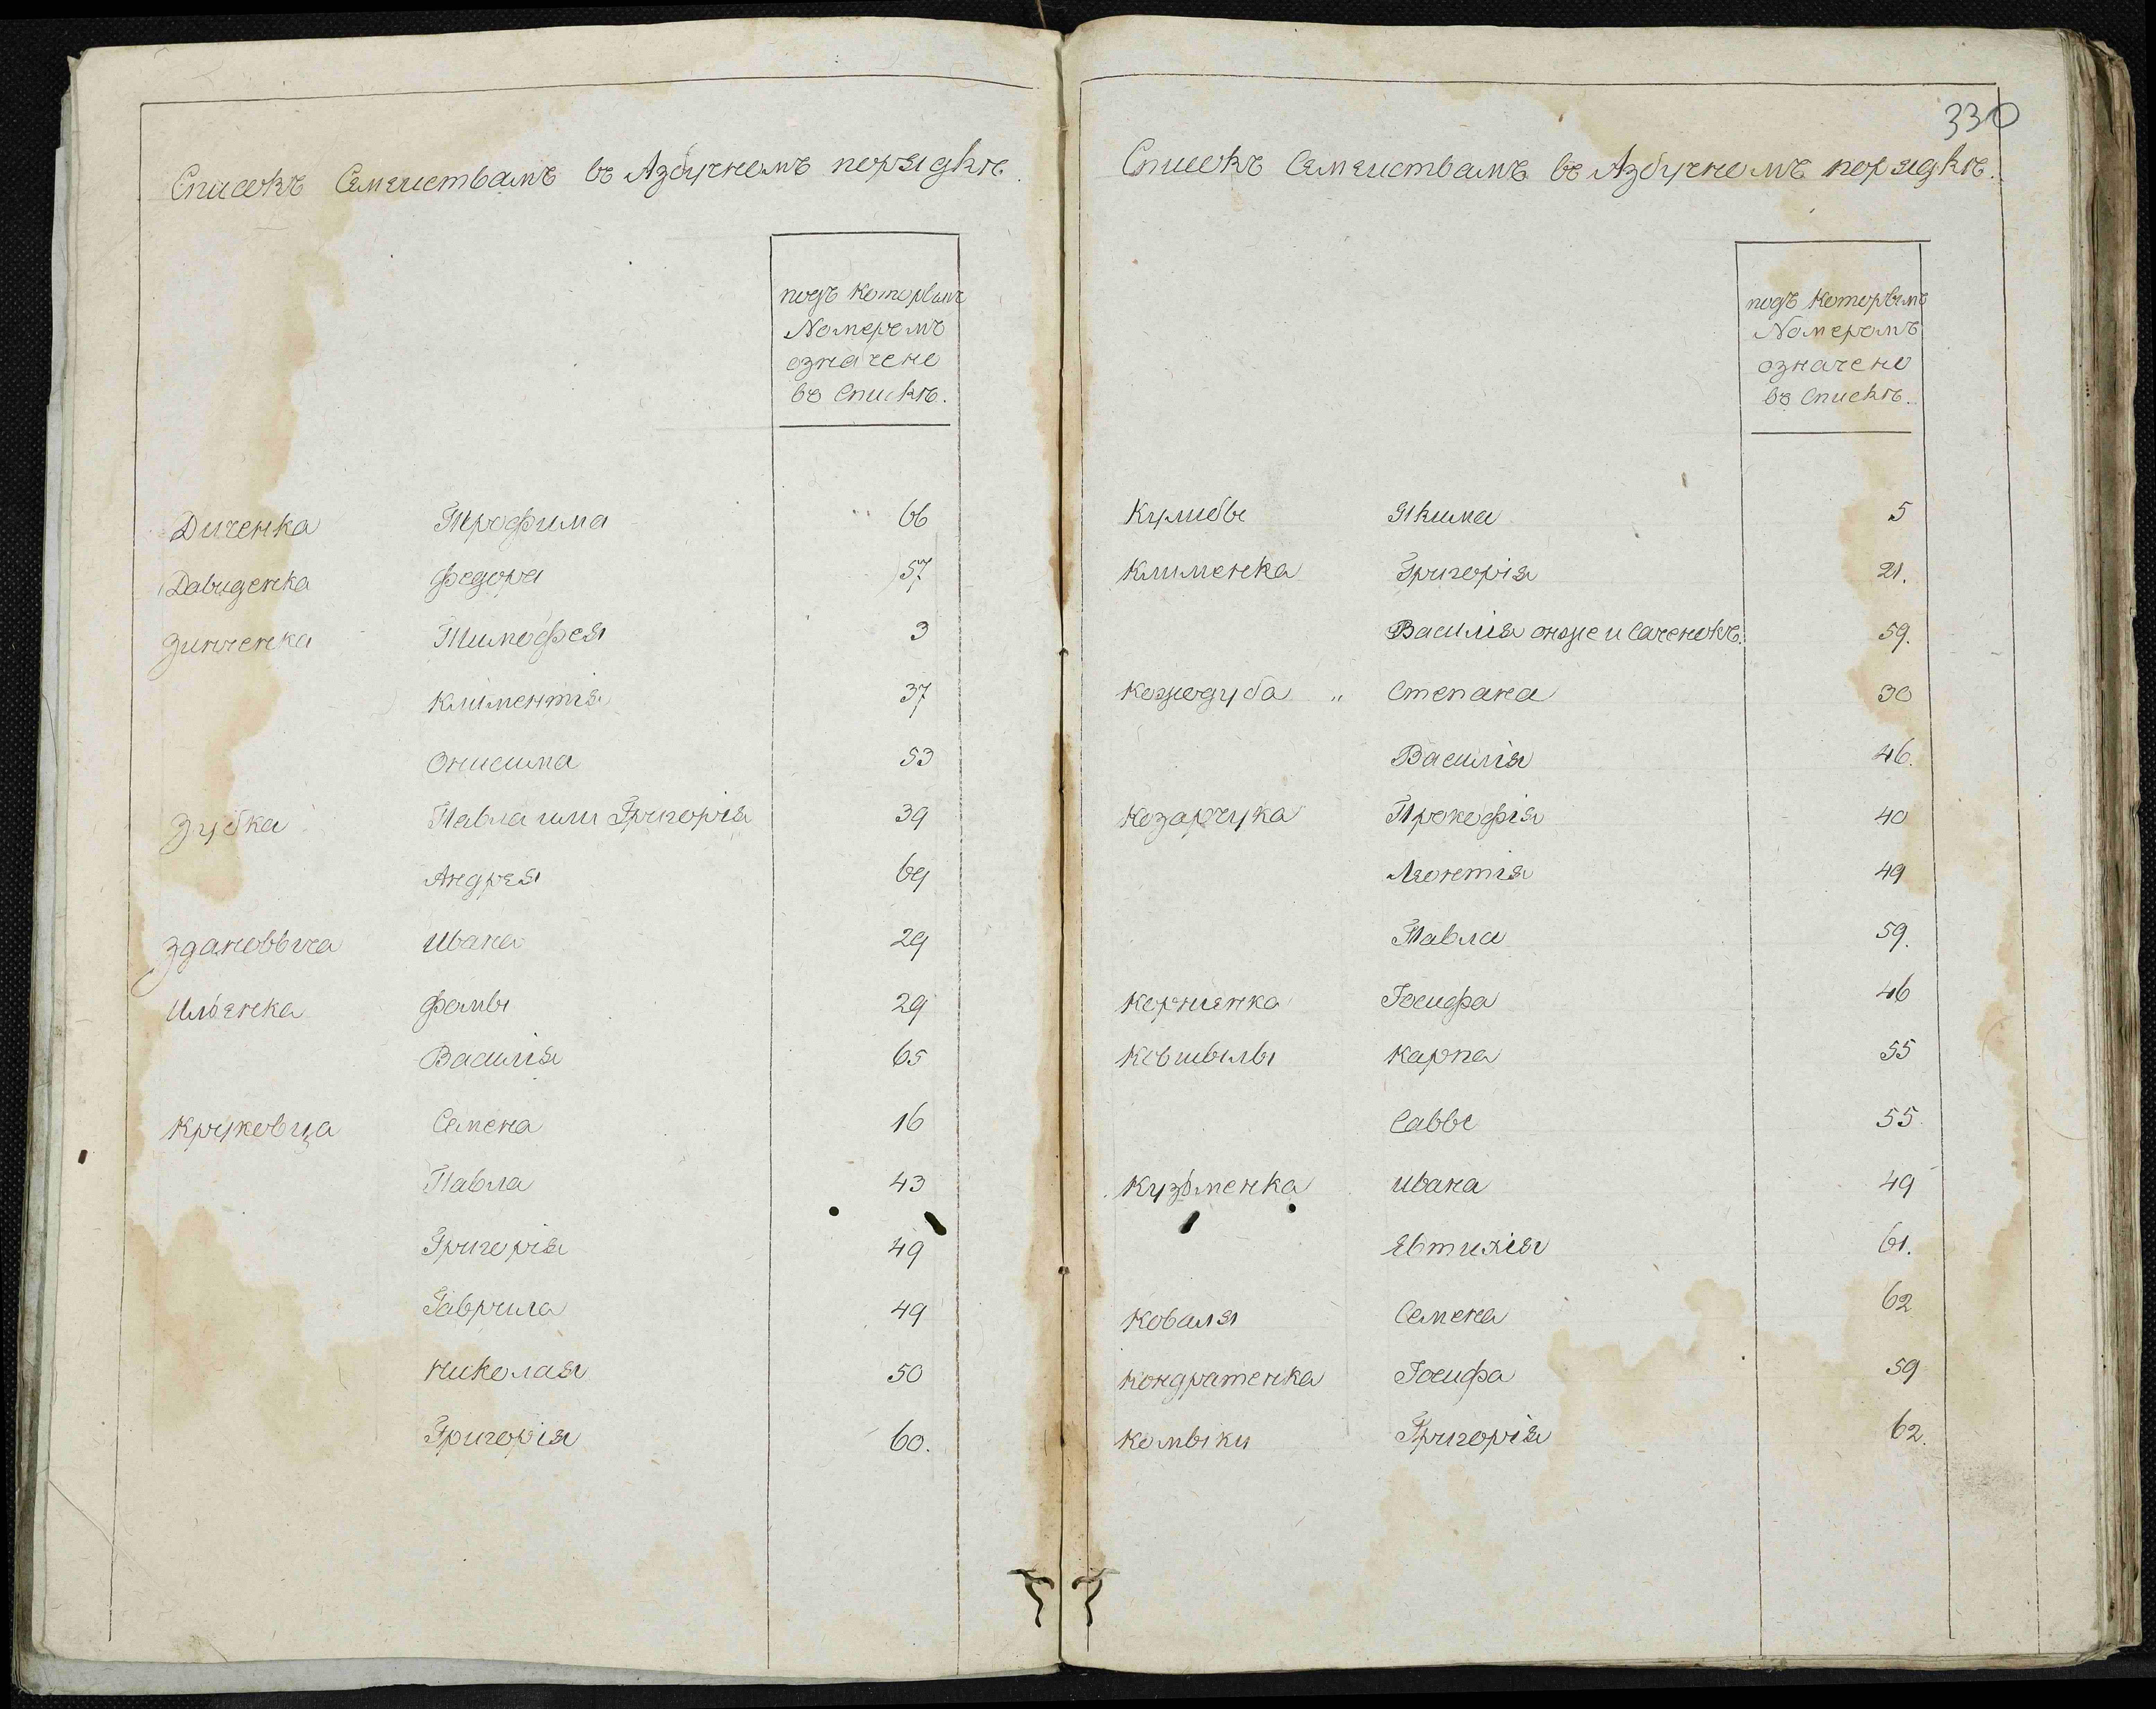 Списокъ Семействамъ въ Азбучномъ порядкѣ.
подъ которымъ
Номеромъ
означено
въ Спискѣ.
Диченка Трофима 66
Давиденка Федора 57
Зинченка Тимофея 3
Климентія 37
Онисима 53
Зубка Павла или Григорія 39
Андрея 69
Здановыча Ивана 29
Ильенка Фомы 29
Василія 65
Круковца Семена 16
Павла 43
Григорія 49
Гаврила 49
Николая 50
Григорія 60.
330
Списокъ Семействамъ въ Азбучномъ порядкѣ.
подъ которымъ
Номеромъ
означено
въ Спискѣ.
Кулибы Якима 5
Клименка Григорія 21.
Василія онже и Саченокъ. 59.
Кожедуба „ Степана 30
Василія 46.
Козарчука Прокофія 40
Леонтія 49
Павла 59.
Корніенка Іосифа 46
Ковшылы Карпа 55
Саввы 55.
Кузьменка Ивана 49
Евтихія 61.
Коваля Семена 62
Кондратенка Іосифа 59
Комыки Григорія 62.